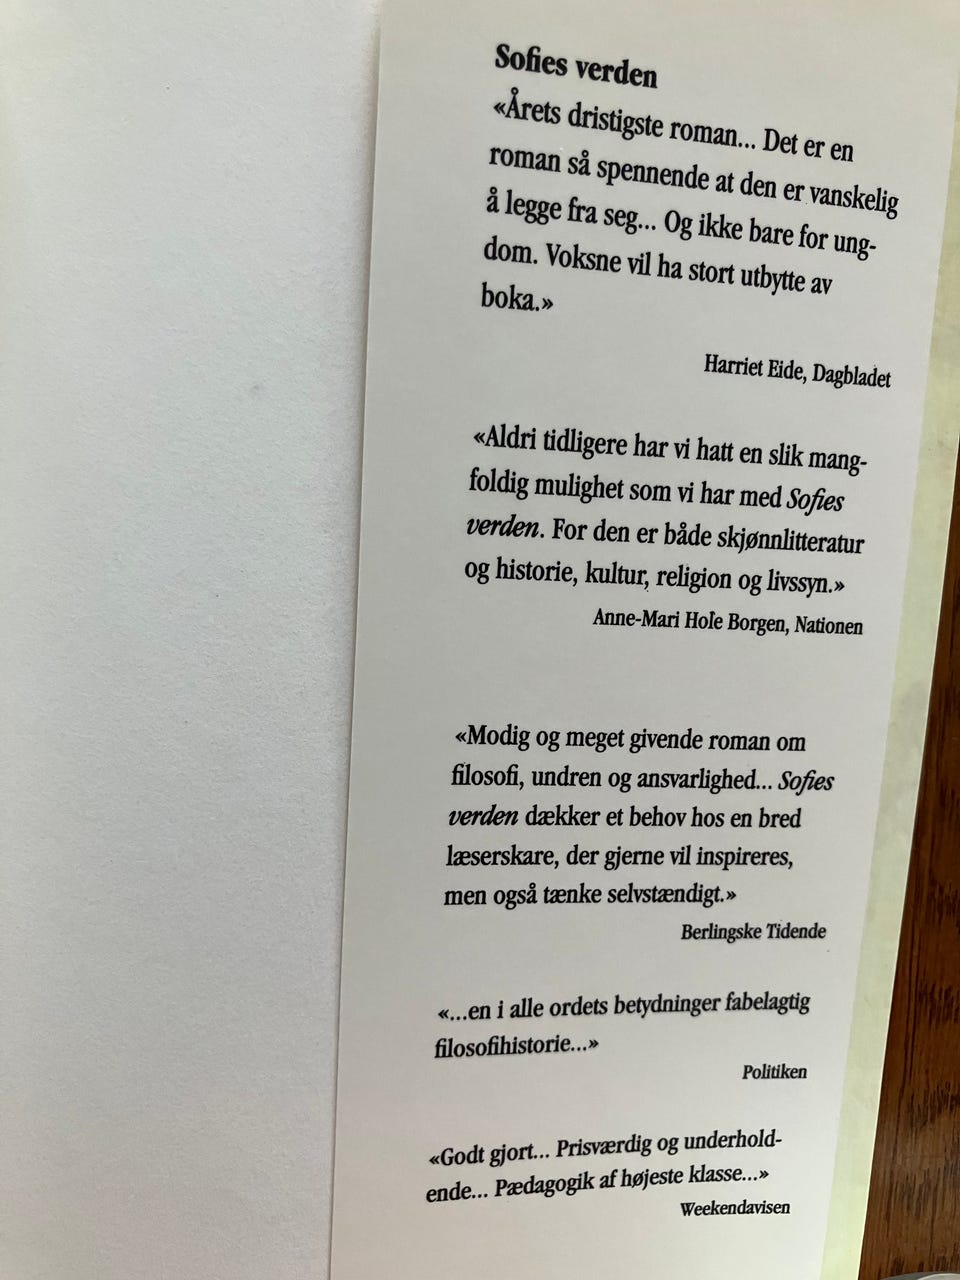 Sofies verden
«Årets dristigste roman... Det er en
roman så spennende at den er vanskelig
å legge fra seg... Og ikke bare for ung-
dom. Voksne vil ha stort utbytte av
boka.»
Harriet Eide, Dagbladet
«Aldri tidligere har vi hatt en slik mang-
foldig mulighet som vi har med Sofies
verden. For den er både skjønnlitteratur
og historie, kultur, religion og livssyn.»
Anne-Mari Hole Borgen, Nationen
«Modig og meget givende roman om
filosofi, undren og ansvarlighed... Sofies
verden dækker et behov hos en bred
læserskare, der gjerne vil inspireres,
men også tænke selvstændigt.»
Berlingske Tidende
«...en i alle ordets betydninger fabelagtig
filosofihistorie...»
Politiken
«Godt gjort... Prisværdig og underhold-
ende... Pædagogik af højeste klasse...»
Weekendavisen